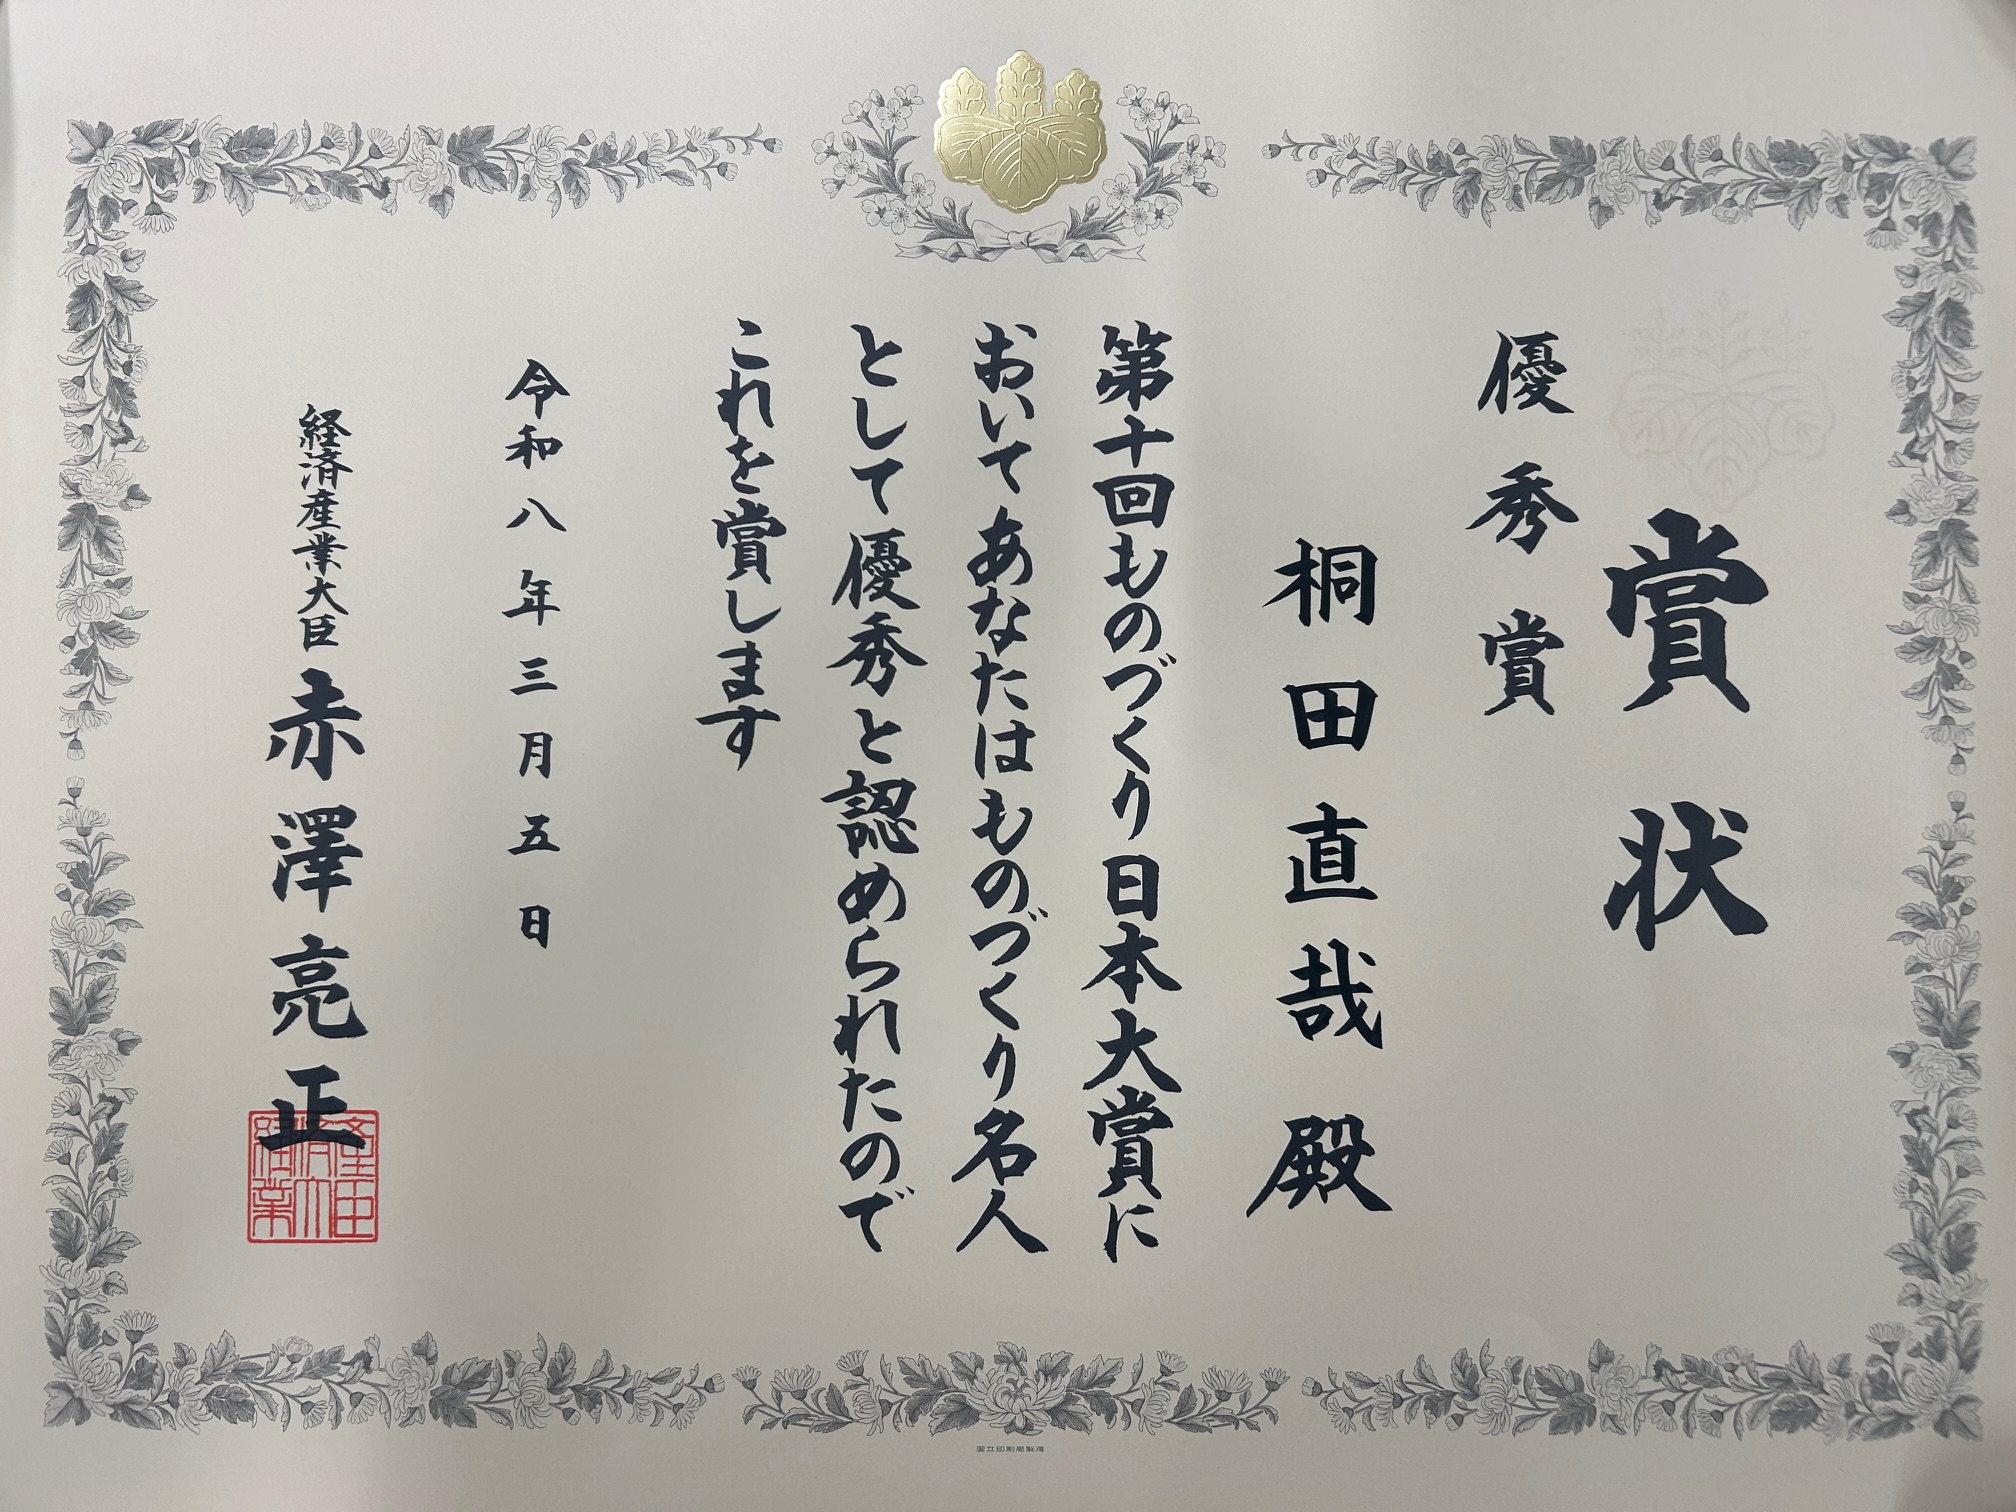 賞状
優秀賞
桐田直哉殿
第十回ものづくり日本大賞に
おいてあなたはものづくり名人
として優秀と認められたので
これを賞します
令和八年三月五日
経済産業大臣 赤澤亮正
国立印刷局製造